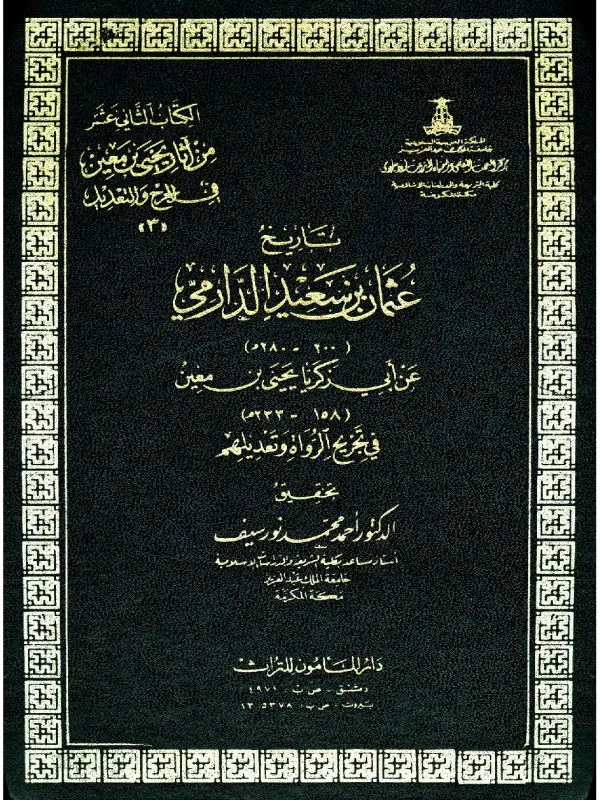 المملكة العربية السعودية
جامعة الملك عبد العزيز
مركز البحث العلمي وإحياء التراث الإسلامي
كلية الشريعة والدراسات الإسلامية
مكة المكرمة
الكتاب الثاني عشر
من آثار يحيى بن معين
في الجرح والتعديل
«٣»
تاريخ
عثمان بن سعيد الدارمي
(٢٠٠ - ٢٨٠ه)
عن أبي زكريا يحيى بن معين
(١٥٨ - ٢٣٣ه)
في تجريح الرواة وتعديلهم
تحقيق
الدكتور أحمد محمد نور سيف
أستاذ مساعد بكلية الشريعة والدراسات الإسلامية
جامعة الملك عبد العزيز
مكة المكرمة
دار المأمون للتراث
دمشق - ص ب . ٤٩٧١
بيروت - ص ب . ١٣٥٣٧٨